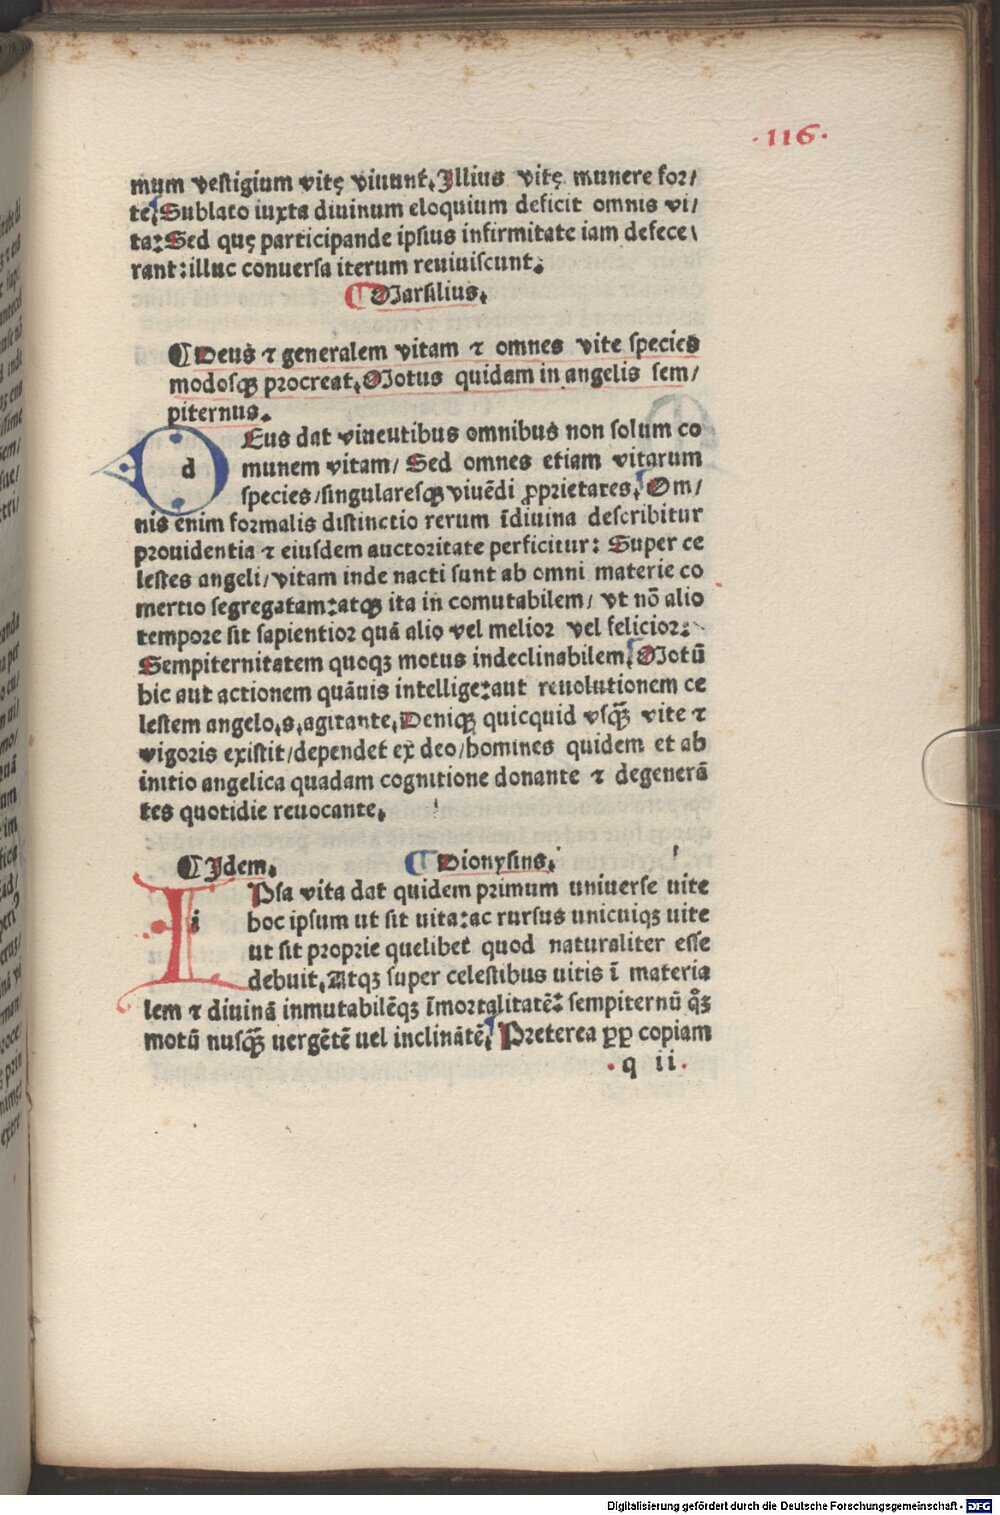 ·116·
mum vestigium vitę viuunt. Illius vitę munere for/
te. Sublato iuxta diuinum eloquium deficit omnis vi/
ta: Sed quę participande ipsius infirmitate iam defece\
rant: illuc conuersa iterum reuiuiscunt.
¶ Marsilius.
¶ Deus ⁊ generalem vitam ⁊ omnes vite species
modosqꝫ procreat. Motus quidam in angelis sem/
piternus.
d Eus dat viueutibus omnibus non solum co
munem vitam/ Sed omnes etiam vitarum
species/singularesqꝫ viuēdi ꝓprietates. Om/
nis enim formalis distinctio rerum īdiuina describitur
prouidentia ⁊ eiusdem auctoritate perficitur: Super ce
lestes angeli/vitam inde nacti sunt ab omni materie co
mertio segregatam: atqꝫ ita in comutabilem/ vt nō alio
tempore sit sapientior quā alio vel melior vel felicior:
Sempiternitatem quoqꝫ motus indeclinabilem. Motū
hic aut actionem quāuis intellige: aut reuolutionem ce
lestem angelo.s.agitante. Deniqꝫ quicquid vsqꝫ̄ vite ⁊
vigoris existit/dependet ex deo/homines quidem et ab
initio angelica quadam cognitione donante ⁊ degenerā
tes quotidie reuocante.
¶ Idem. ¶ Dionysius.
i Psa vita dat quidem primum uniuerse uite
hoc ipsum ut sit uita: ac rursus unicuiqꝫ uite
ut sit proprie quelibet quod naturaliter esse
debuit. Atqꝫ super celestibus uitis ī materia
lem ⁊ diuinā inmutabilēqꝫ īmortalitatē: sempiternū qͦꝫ
motū nusqꝫ̄ uergētē uel inclinātē. Preterea ꝓꝑ copiam
q ii
Digitalisierung gefördert durch die Deutsche Forschungsgemeinschaft - DFG